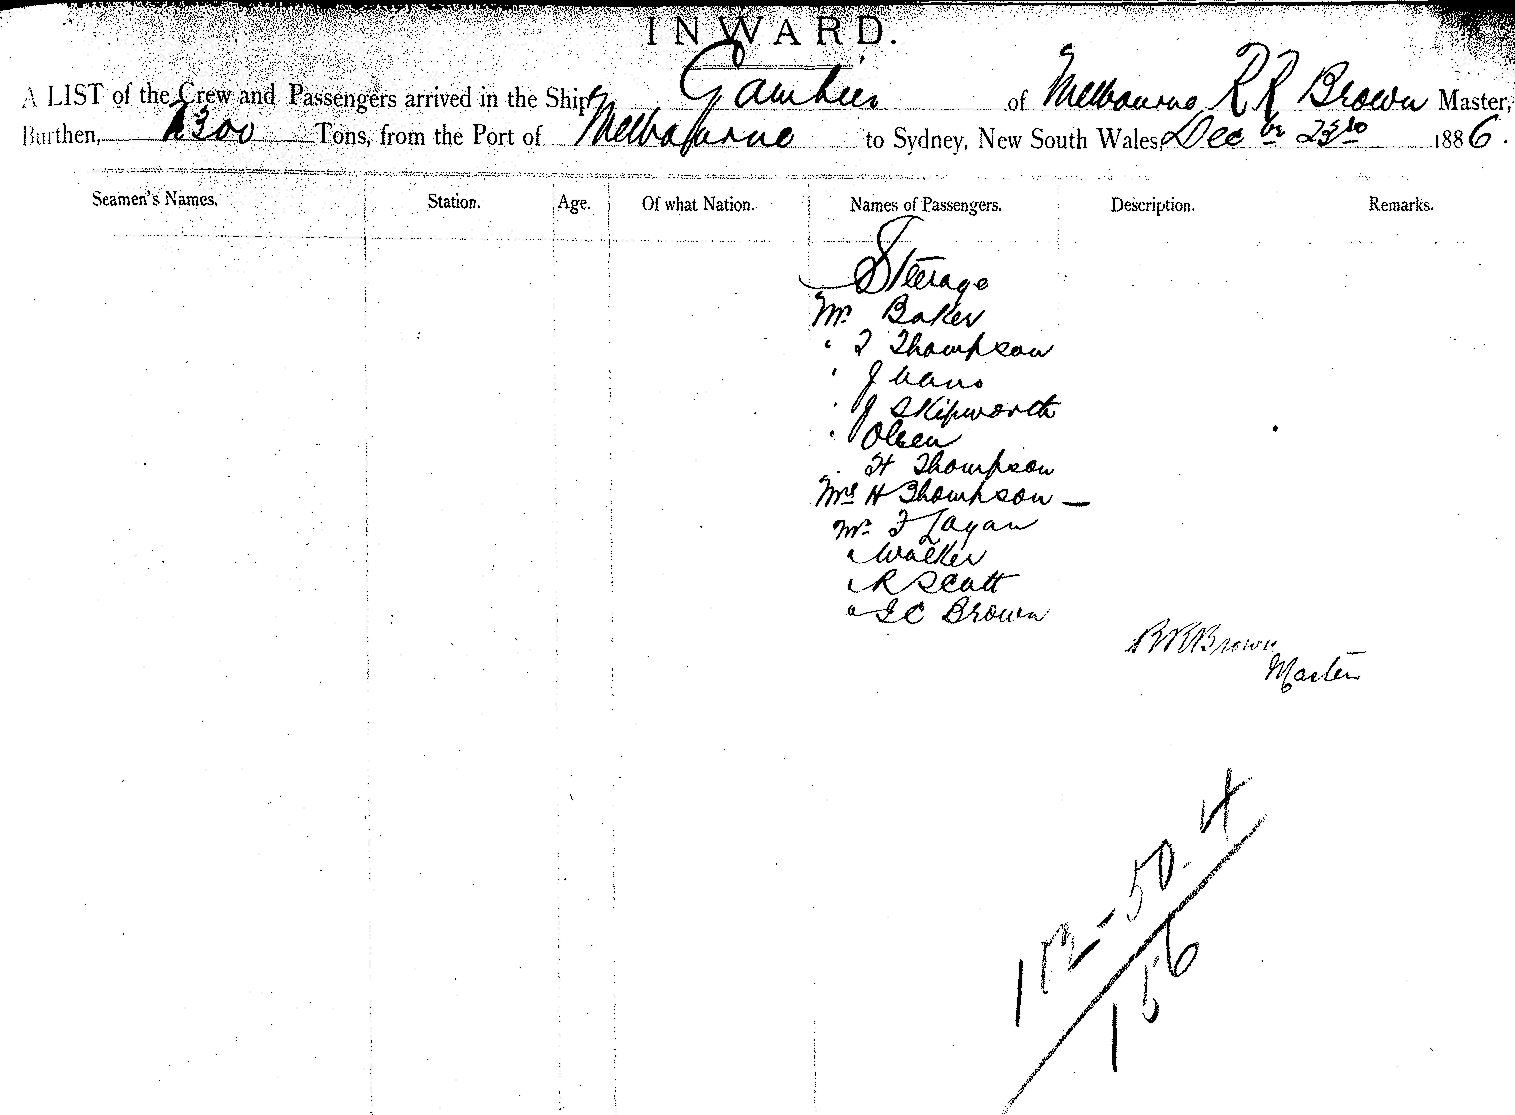 INWARD.
A LIST of the Crew and Passengers arrived in the Ship Gambier of Melbourne R R Brown Master,
Burthen, 2300 Tons, from the Port of Melbourne to Sydney, New South Wales, Decbr 23rd 1886.
Seamen's Names. Station. Age. Of what Nation. Names of Passengers. Description. Remarks.
Steerage
Mr Baker
" T Thompson
" J
" J Skipworth
" Olsen
" H Thompson
Mrs H Thompson —
Mr F Lagan
" Walker
" R Scott
" Brown
R R Brown
Master
- 50 - 4
156